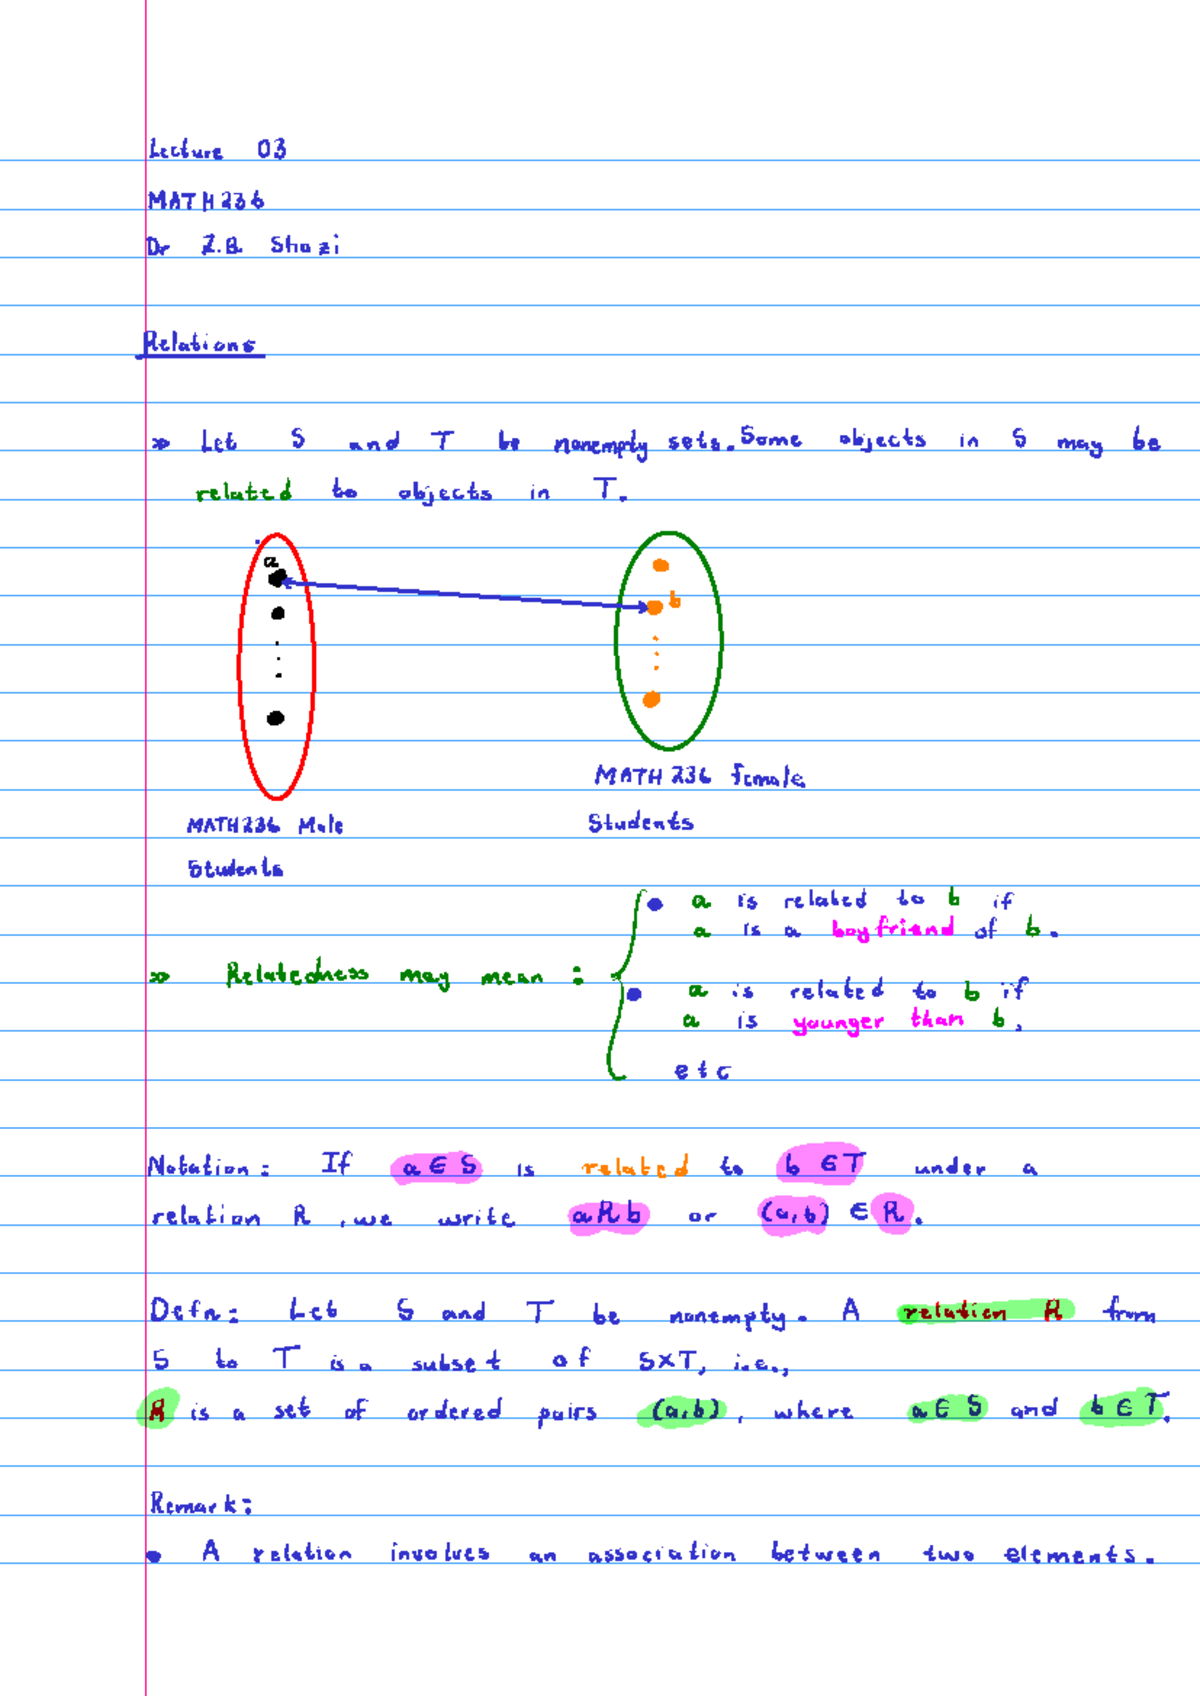 Lecture 03
MATH236
Dr Z.B. Shozi
Relations
» Let S and T be nonempty sets. Some objects in S may be
related to objects in T.
a
b
MATH 236 female
Students
MATH236 Male
Students
• a is related to b if
a is a boyfriend of b.
» Relatedness may mean :
• a is related to b if
a is younger than b,
etc
Notation: If a ∈ S is related to b ∈ T under a
relation R , we write aRb or (a,b) ∈ R.
Defn: Let S and T be nonempty. A relation R from
S to T is a subset of S×T, i.e.,
R is a set of ordered pairs (a,b), where a ∈ S and b ∈ T.
Remark:
• A relation involves an association between two elements.